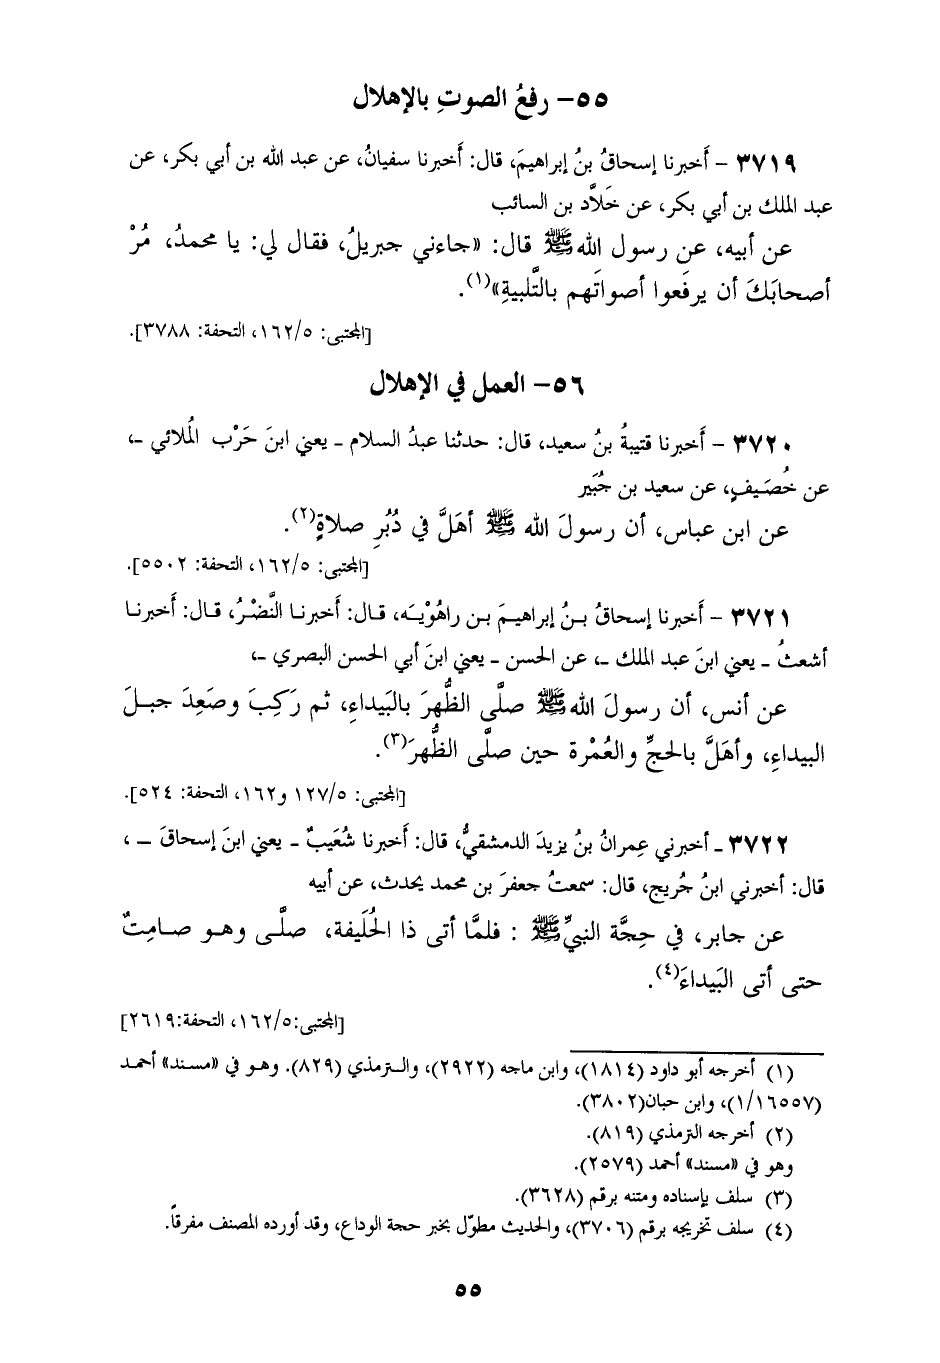 ٥٥- رفعُ الصوتِ بالإهلال
٣٧١٩ - أَخبرنا إسحاقُ بنُ إبراهيمَ، قال: أَخبرنا سفيانُ، عن عبد الله بن أبي بكر، عن
عبد الملك بن أبي بكر، عن خَلاَّد بن السائب
عن أبيه، عن رسول الله ﷺ قال: «جاءني جبريلُ، فقال لي: يا محمدُ، مُرْ
أصحابَكَ أن يرفَعوا أصواتَهم بالتَّلبيةِ»(١).
[المجتبى: ١٦٢/٥، التحفة: ٣٧٨٨].
٥٦- العمل في الإهلال
٣٧٢٠ - أَخبرنا قتيبةُ بنُ سعيد، قال: حدثنا عبدُ السلام ـ يعني ابنَ حَرْب المُلائي ـ،
عن خُصَيفٍ، عن سعيد بن جُبَير
عن ابن عباس، أن رسولَ الله ﷺ أهَلَّ في دُبُرِ صلاةٍ(٢).
[المجتبى: ١٦٢/٥، التحفة: ٥٥٠٢].
٣٧٢١ - أَخبرنا إسحاقُ بنُ إبراهيمَ بن راهُوْيَه، قال: أَخبرنا النَّضْرُ، قال: أَخبرنا
أشعثُ ـ يعني ابنَ عبد الملك ـ، عن الحسن ـ يعني ابنَ أبي الحسن البصري ـ،
عن أنس، أن رسولَ الله ﷺ صلَّى الظُّهرَ بالبَيداءِ، ثم رَكِبَ وصَعِدَ جبلَ
البيداءِ، وأهَلَّ بالحجِّ والعُمْرة حين صلَّى الظُّهرَ(٣).
[المجتبى: ١٢٧/٥ و١٦٢، التحفة: ٥٢٤].
٣٧٢٢ ـ أخبرني عِمرانُ بنُ يزيدَ الدمشقيُّ، قال: أَخبرنا شُعَيبٌ ـ يعني ابنَ إسحاقَ ـ ،
قال: أخبرني ابنُ جُريج، قال: سمعتُ جعفرَ بن محمد يحدث، عن أبيه
عن جابر، في حِجَّة النبيِّ ﷺ : فلمَّا أتى ذا الحُلَيفة، صلَّى وهو صامِتٌ
حتى أتى البَيداءَ(٤).
[المجتبى:١٦٢/٥، التحفة:٢٦١٩]
(١) أخرجه أبو داود (١٨١٤)، وابن ماجه (٢٩٢٢)، والترمذي (٨٢٩). وهو في «مسند» أحمد
(١/١٦٥٥٧)، وابن حبان(٣٨٠٢).
(٢) أخرجه الترمذي (٨١٩).
وهو في «مسند» أحمد (٢٥٧٩).
(٣) سلف بإسناده ومتنه برقم (٣٦٢٨).
(٤) سلف تخريجه برقم (٣٧٠٦)، والحديث مطوّل بخبر حجة الوداع، وقد أورده المصنف مفرقاً.
٥٥